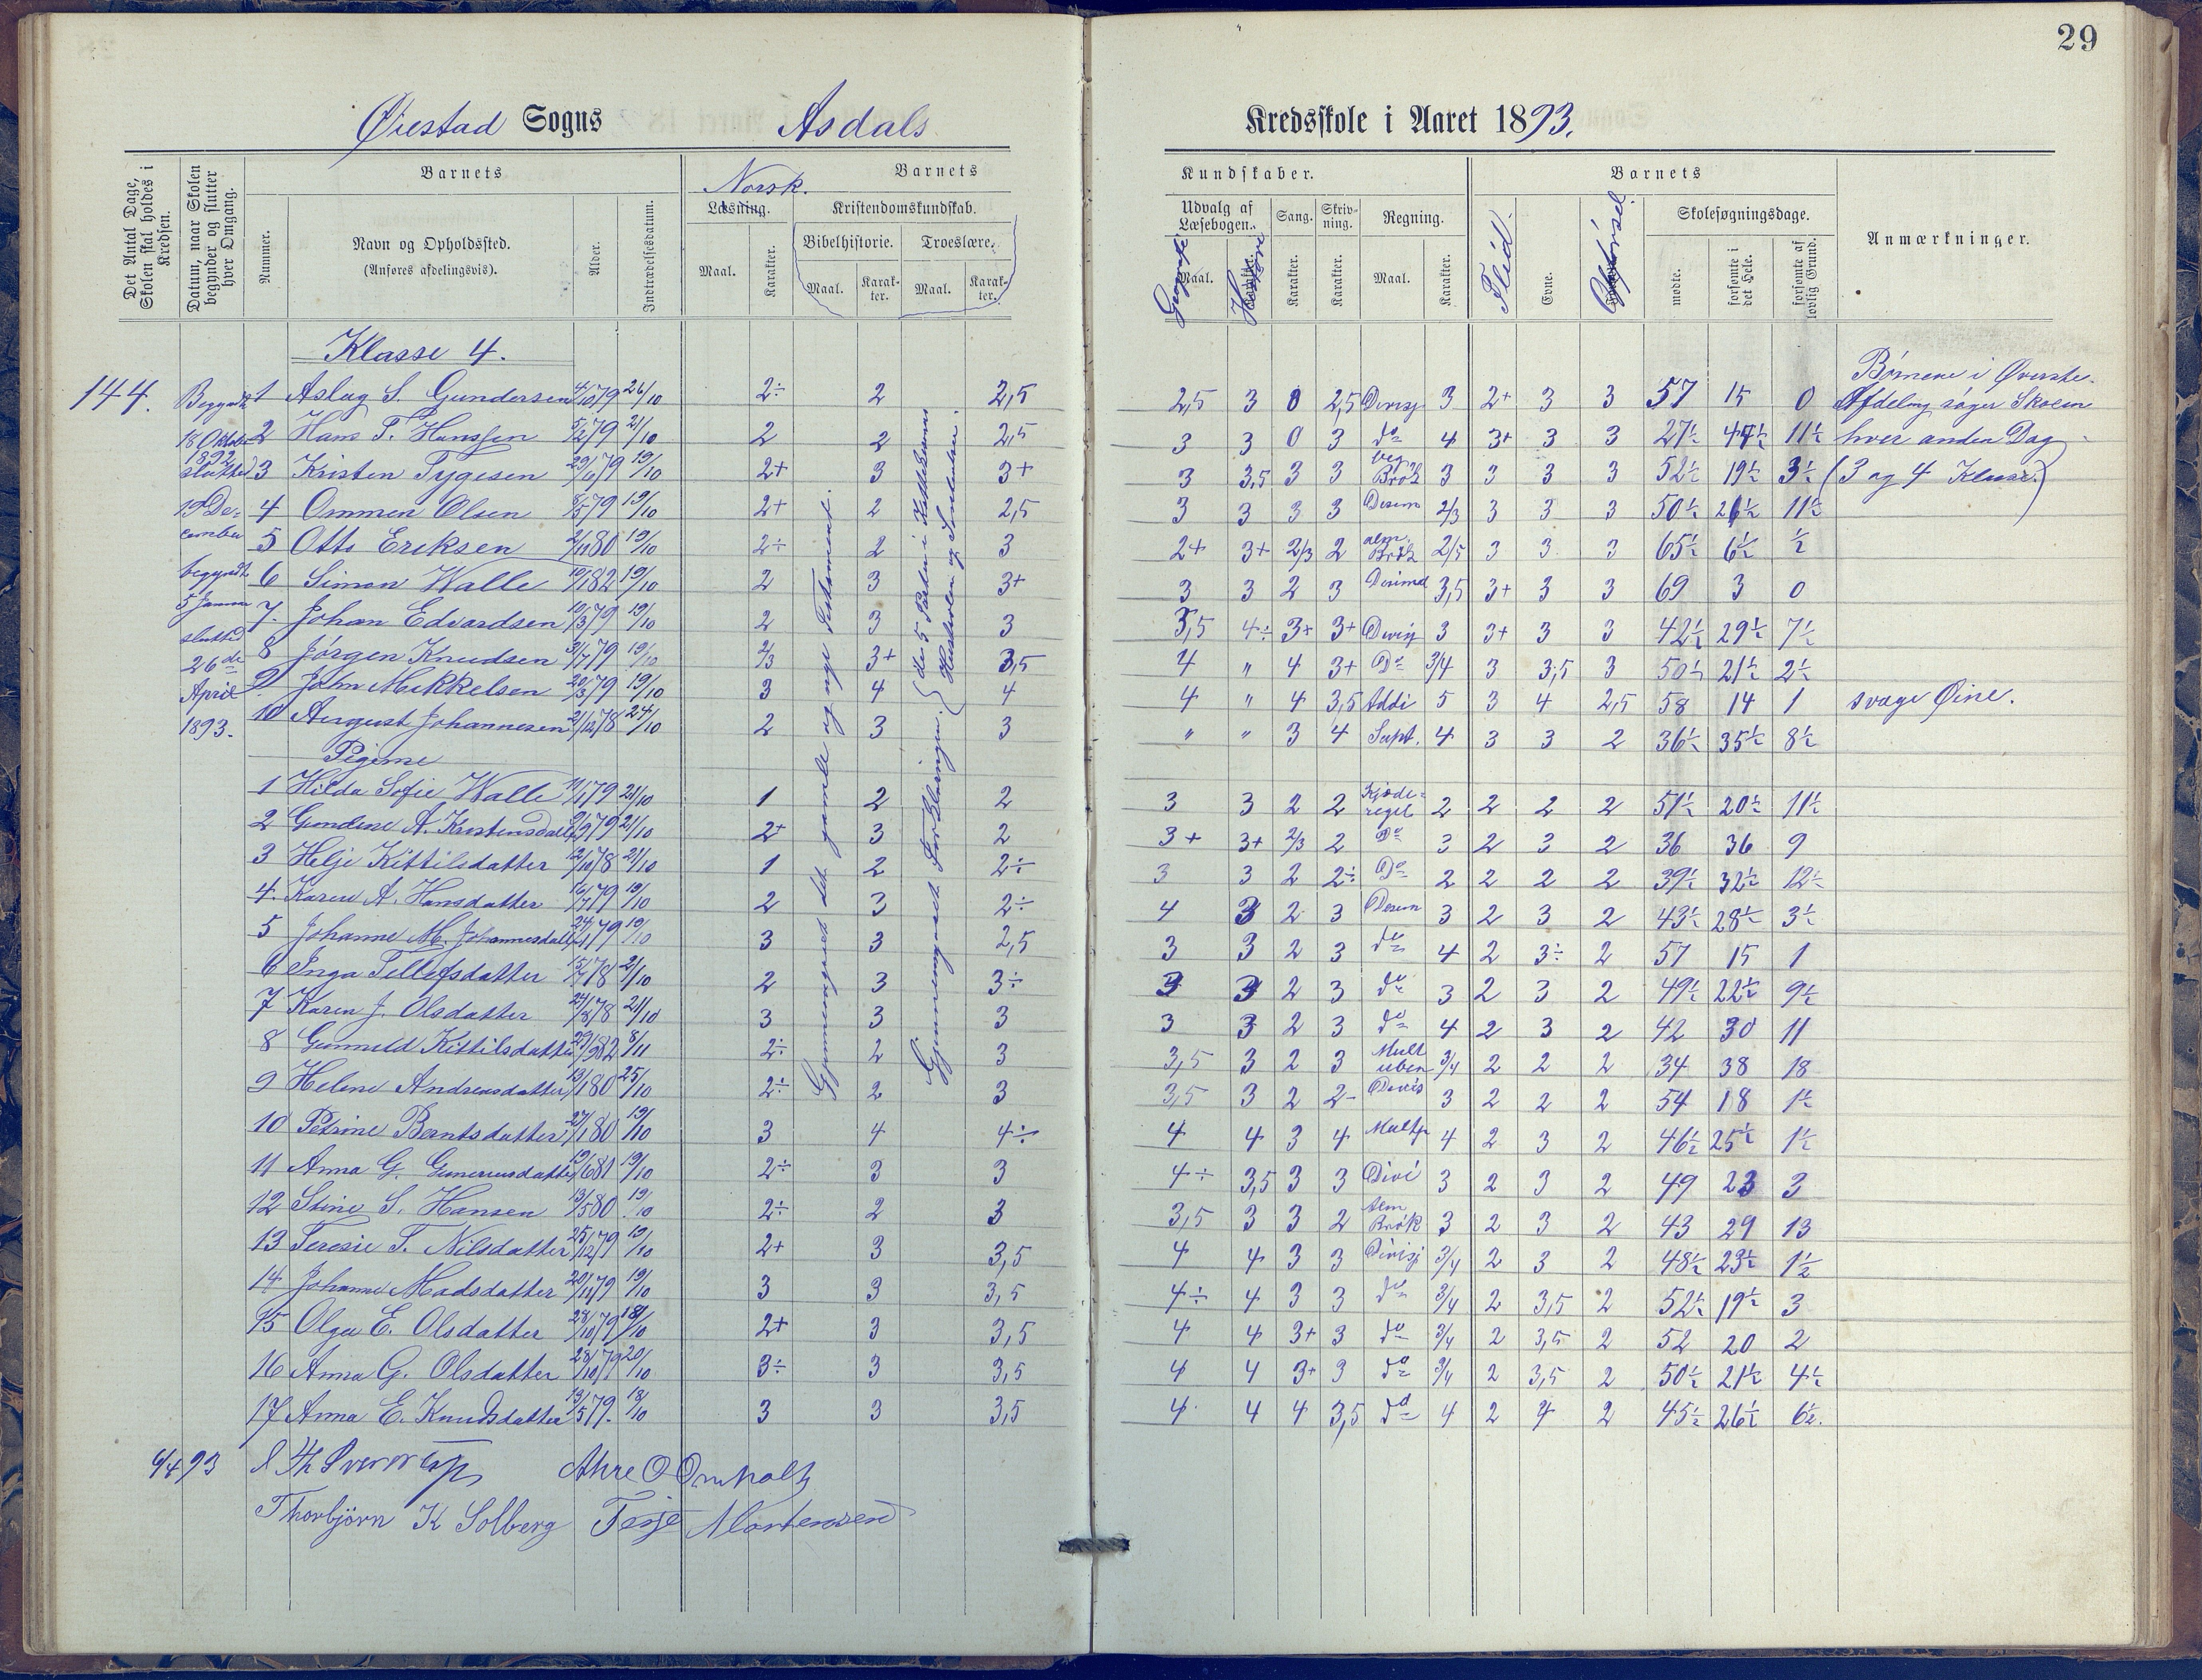 29
Øiestad Sogns Asdals Kredsskole i Aaret 1893.
Det Antal Dage, Skolen skal holdes i Kredsen.
Datum, naar Skolen begynder og slutter hver Omgang.
Barnets
Nummer.
Navn og Opholdssted.
(Anføres afdelingsvis).
Alder.
Indtrædelsesdatum.
Norsk.
Barnets
Læsning.
Kristendomskundskab.
Bibelhistorie. Troeslære.
Maal. Karakter. Maal. Karakter. Maal. Karakter.
Kundskaber.
Udvalg af Læsebogen. Sang. Skrivning. Regning.
Maal. Karakter. Karakter. Karakter. Maal. Karakter.
Historie
Barnets
Flid. Evne. Opførsel
Skolesøgningsdage.
mødte. forsømte i det Hele. forsømte af lovlig Grund.
Anmærkninger.
Klasse 4.
144.
Begyndt
18 Oktober
1892
slutted
19 De-
cember
begyndt
5 Januar
slutted
26de
April
1893.
Gjennemgaaet det gamle og nye Testament.
Gjennemgaaet Forklaringen.
(de 5 Parter i Katekismus
Hustavlen og Skriftemaal.
1 Aslag S. Gundersen 4/10 79 26/10 2÷ 2 2,5 2,5 3 0 2,5 Divisj 3 2+ 3 3 57 15 0
2 Hans T. Hanssen 5/2 79 21/10 2 2 2,5 3 3 0 3 do 4 3+ 3 3 27½ 44½ 11½
3 Kristen Tygesen 29/10 79 19/10 2+ 3 3+ 3 3,5 3 3 Brøk 3 3 3 3 52½ 19½ 3½
4 Ommen Olsen 8/5 79 19/10 2+ 2 2,5 3 3 3 3 Desim 2/3 3 3 3 50½ 21½ 11½
5 Otto Eriksen 2/11 80 19/10 2÷ 2 3 2+ 3+ 2/3 2 alm. Brøk 2/5 3 3 3 65½ 6½ ½
6 Simon Walle 10/1 82 19/10 2 3 3+ 3 3 2 3 Desimal 3,5 3+ 3 3 69 3 0
7. Johan Edvardsen 10/3 79 19/10 2 3 3 3,5 4÷ 3+ 3+ Divisj 3 3+ 3 3 42½ 29½ 7½
8 Jørgen Knudsen 3/7 79 19/10 2/3 3+ 3,5 4 " 4 3+ Do 3/4 3 3,5 3 50½ 21½ 2½
9 John Mikkelsen 20/3 79 19/10 3 4 4 4 " 4 3,5 Addi 5 3 4 2,5 58 14 1 svage Øine.
10 August Johannesen 2/12 78 24/10 2 3 3 " " 3 4 Supt. 4 3 3 2 36½ 35½ 8½
Børnene i Øverste
Afdeling søger Skolen
hver anden Dag
(3 og 4 Klasse.)
Pigerne
1 Hilda Sofie Walle 11/1 79 21/10 1 2 2 3 3 2 2 Kjæde-regel 2 2 2 2 51½ 20½ 11½
2 Gundene A. Kristensdatter 9/9 79 21/10 2+ 3 2 3+ 3+ 2/3 2 Do 3 2 3 2 36 36 9
3 Helje Kittilsdatter 12/10 78 21/10 1 2 2÷ 3 3 2 2÷ Do 2 2 2 2 39½ 32½ 12½
4. Karen A. Hansdatter 16/7 79 19/10 2 3 2÷ 4 3 2 3 Desim 3 2 3 2 43½ 28½ 3½
5 Johanne M. Johannesdatter 24/4 79 19/10 3 3 2,5 3 3 2 3 do 4 2 3÷ 2 57 15 1
6 Inga Tellefsdatter 15/7 78 21/10 2 3 3÷ 3 3 2 3 do 3 2 3 2 49½ 22½ 9½
7 Karen J. Olsdatter 24/8 78 21/10 3 3 3 3 3 2 3 do 4 2 3 2 42 30 11
8 Gunnuld Kittilsdatter 29/9 82 8/11 2÷ 2 3 3,5 3 2 3 Mult uben 3/4 2 2 2 34 38 18
9 Helene Andreasdatter 13/1 80 25/10 2÷ 2 3 3,5 3 2 2- Divis 3 2 2 2 54 18 1½
10 Petrine Berntsdatter 27/1 80 19/10 3 4 4÷ 4 4 3 4 Multp 4 2 3 2 46½ 25½ 1½
11 Anna G. Gunersusdatter 19/6 81 19/10 2÷ 3 3 4÷ 3,5 3 3 Divi 3 2 3 2 49 23 3
12 Stine S. Hansen 13/5 80 19/10 2÷ 2 3 3,5 3 3 2 Alm Brøk 3 2 3 2 43 29 13
13 Teresie T. Nilsdatter 25/12 79 19/10 2+ 3 3,5 4 4 3 3 Divisj 3/4 2 3 2 48½ 23½ 1½
14 Johanne Madsdatter 20/11 79 19/10 3 3 3,5 4÷ 4 3 3 do 3/4 2 3,5 2 52½ 19½ 3
15 Olga E. Olsdatter 28/10 79 18/10 2+ 3 3,5 4 4 3+ 3 do 3/4 2 3,5 2 52 20 2
16 Anna G. Olsdatter 28/10 79 20/10 3÷ 3 3,5 4 4 3+ 3 do 3/4 2 3,5 2 50½ 21½ 4½
17 Anna E. Knudsdatter 13/5 79. 18/10 3 3 3,5 4 4 4 3,5 do 4 2 4 2 45½ 26½ 6½.
6/4 93 Th Sverdrup Akre O Omholt
Thorbjørn K Solberg Terje Mortensen